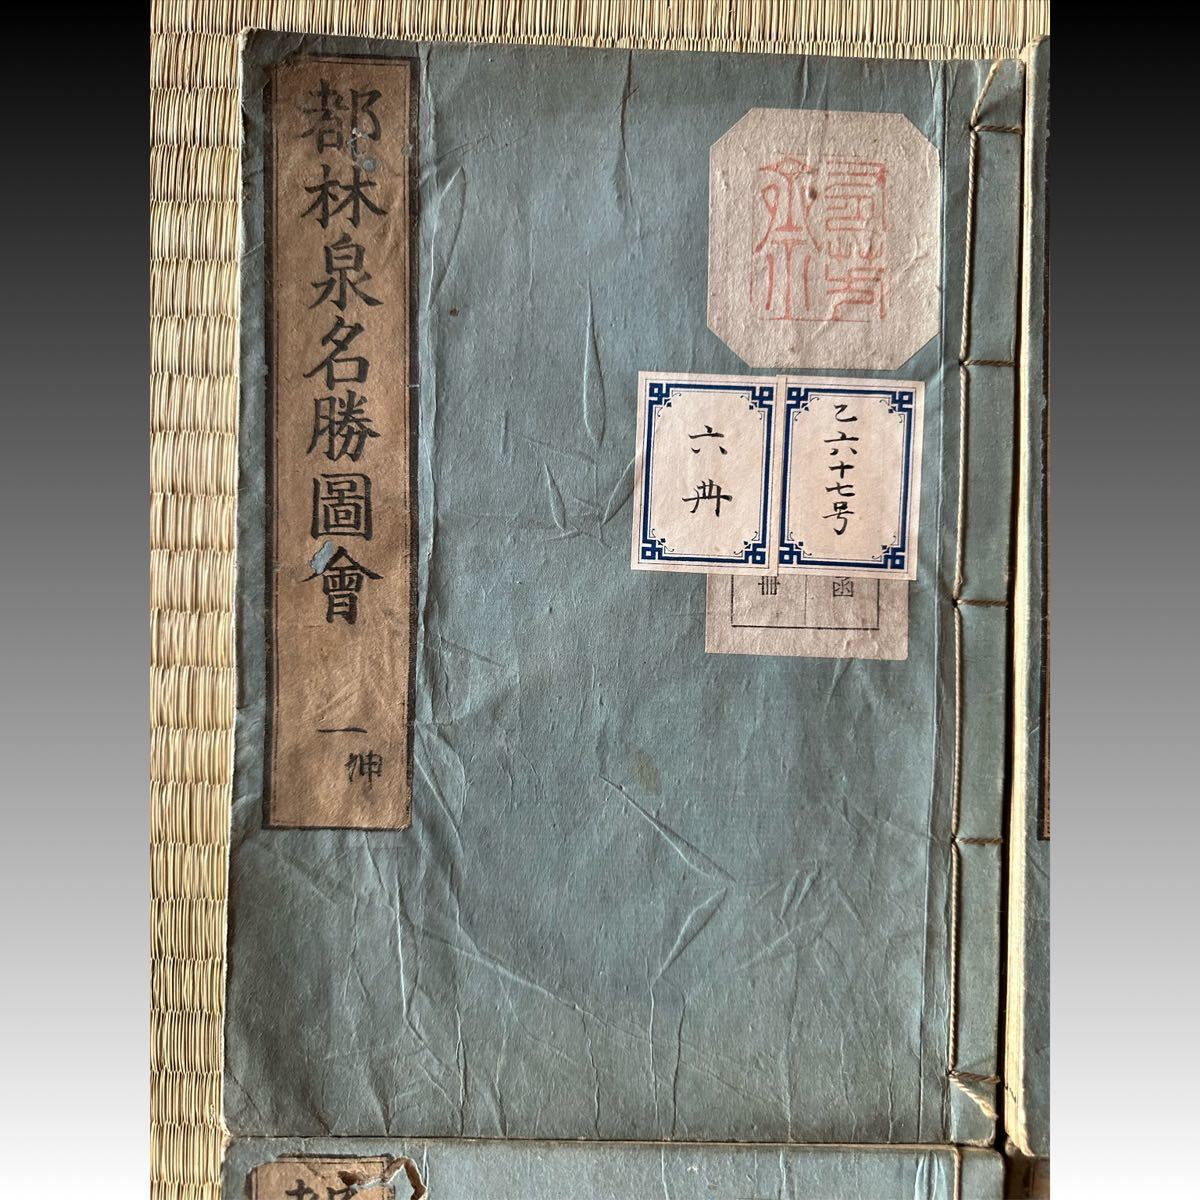 都林泉名勝圖會 一坤
乙六十七号
六冊
函
冊
都